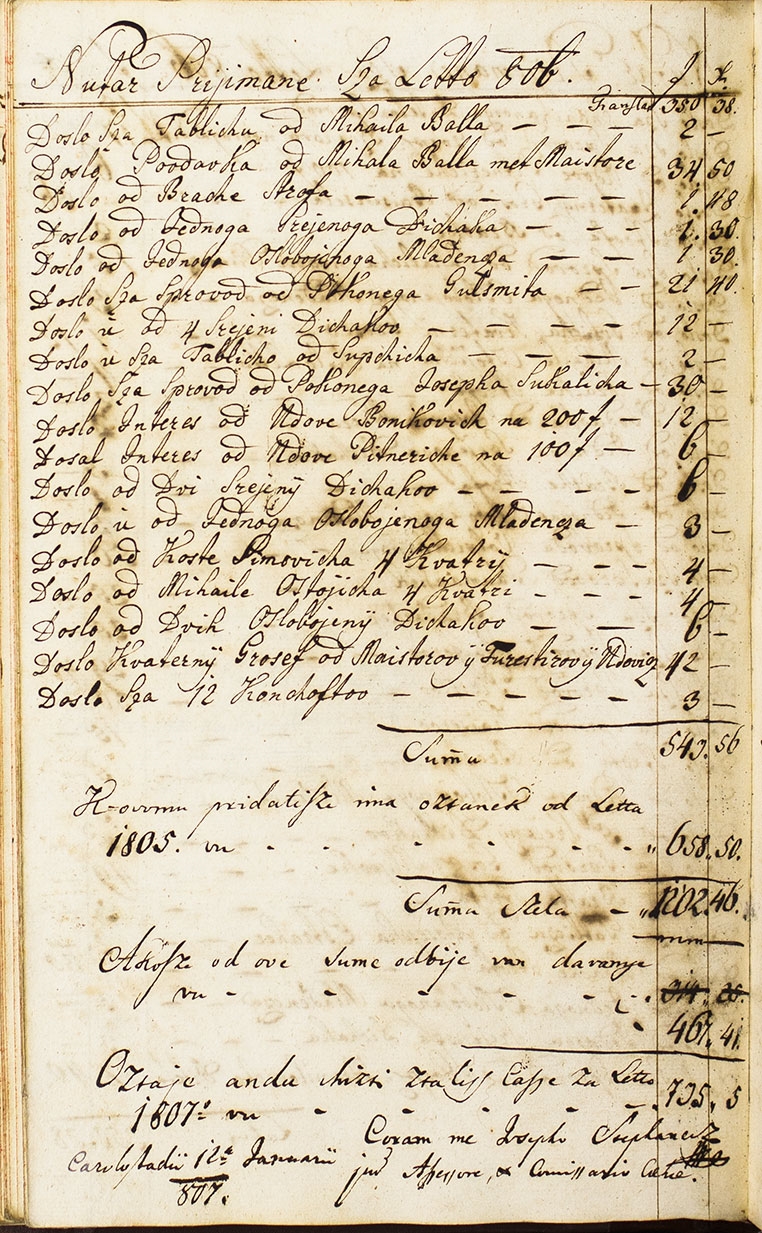 Nutar Prijimane Sza Letto 806. f. x.
Translat 350 38.
Doslo Sza Tablichu od Mihaila Balla — — — 2 —
Doslo Povdavka od Mihala Balla met Maistore 34 50
Doslo od Brache Strofa — — — — — 1. 48
Doslo od Jednoga Srejenoga Dichaka — — — 1. 30.
Doslo od Jednoga Oslobojenoga Mladencza — — 1 30.
Doslo Sza Sprovod od Pokonega Gultsmita — — 21 40.
Doslo ü od 4 Srejeni Dichakov — — — — 12 —
Doslo ü Sza Tablicho od Supchicha — — — — 2 —
Doslo Sza Sprovod od Pokonega Josepha Sukalicha — 30 —
Doslo Interes od Udove Bonikovich na 200 f — 12 —
Dosal Interes od Udove Pitneriche na 100 f — 6 —
Doslo od Dvi Srejeny Dichakov — — — — 6 —
Doslo ü od Jednoga Oslobojenoga Mladencza — 3 —
Doslo od Koste Simovicha 4 Kvatry — — — 4 —
Doslo od Mihaile Ostojicha 4 Kvatri — — — 4 —
Doslo od Dvih Oslobojeny Dichakov — — 6 —
Doslo Kvaterny Grosef od Maistorov y Furestirov y Udovicz 42 —
Doslo Sza 12 Konchoftov — — — — — 3 —
Sum̄a 543. 56
K-ovomu pridatisze ima ozstanek od Letta
1805. vu - - - - - - „ 658. 50.
Sum̄a Szela — „ 1202. 46.
Akosze od ove sume odbije vun davanye
vu - - - - - - 314. 35.
467. 41.
Ozstaje anda chizti zsaliss Casse za Letto
1807. vu - - - - - 735. 5
Carlostadii 12a Januarii Coram me Josepho
807. jur Assessore, & Comissario